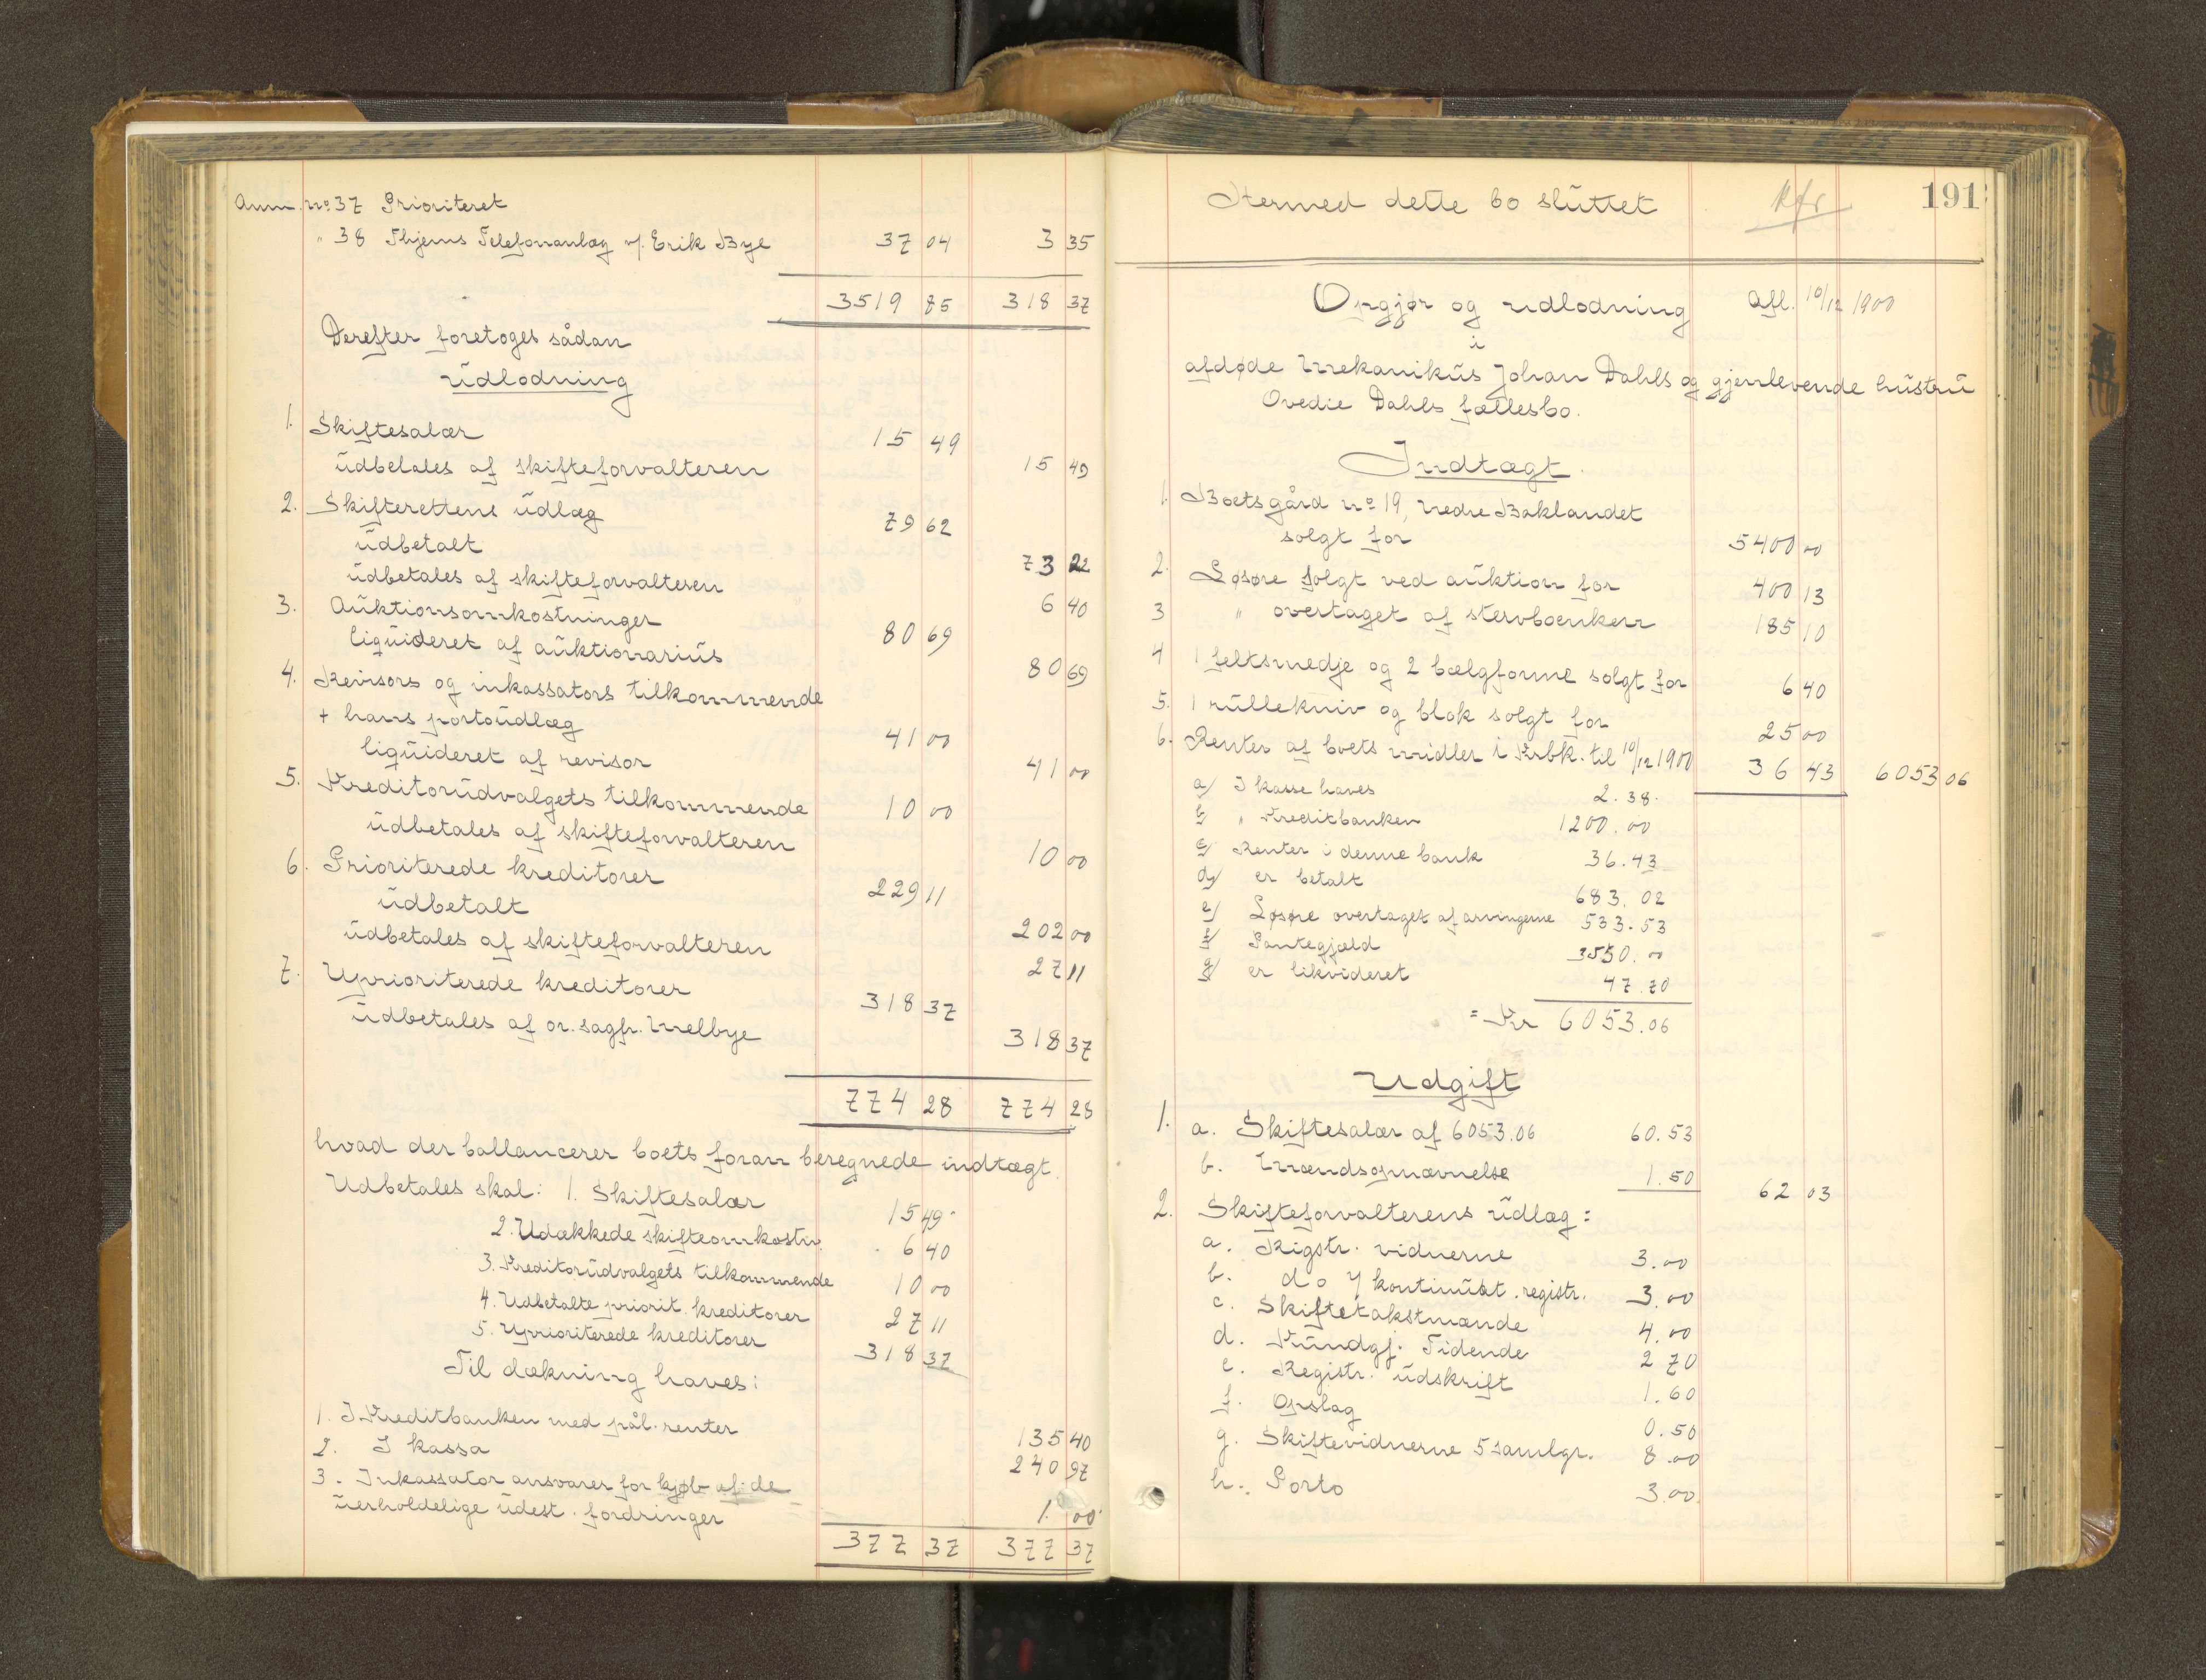 Anm. no 37 Prioriteret
" 38 Thjems Telefonanlæg v/ Erik Bye 37 04 3 35
3519 85 318 37
Derefter foretoges sådan
udlodning
1. Skiftesalær 15 49
udbetales af skifteforvalteren 15 49
2. Skifterettens udlæg 79 62
udbetalt 73 22
udbetales af skifteforvalteren 6 40
3. Auktionsomkostninger 80 69
liquideret af auktionarius 80 69
4. Revisors og inkassators tilkommende
+ hans portoudlæg 41 00
liquideret af revisor 41 00
5. Kreditorudvalgets tilkommende 10 00
udbetales af skifteforvalteren 10 00
6. Prioriterede kreditorer 229 11
udbetalt 202 00
udbetales af skifteforvalteren 27 11
7. Uprioriterede kreditorer 318 37
udbetales af or. sagfr. Melbye 318 37
774 28 774 28
hvad der ballancerer boets foran beregnede indtægt.
Udbetales skal: 1. Skiftesalær 15 49
2. Udækkede skifteomkostn. 6 40
3. Kreditorudvalgets tilkommende 10 00
4. Udbetalte priorit. kreditorer 27 11
5. Uprioriterede kreditorer 318 37
Til dækning haves:
1. I Kreditbanken med pål. renter 135 40
2. I kassa 240 97
3. Inkassator ansvarer for kjøb af de
uerholdelige udest. fordringer 1. 00
377 37 377 37
Hermed dette bo sluttet
191
Opgjør og udlodning Afl. 10/12 1900
i
afdøde Mekanikus Johan Dahls og gjenlevende hustru
Ovedie Dahls fællesbo.
Indtægt.
1. Boets gård no 19, nedre Baklandet
solgt for 5400 00
2. Løsøre solgt ved auktion for 400 13
3 " overtaget af stervboenken 185 10
4 1 feltsmedje og 2 bælgforme solgt for 6 40
5. 1 rullekniv og blok solgt for 25 00
6. Renter af boets midler i Krbk. til 10/12 1900 36 43 6053 06
a/ I kasse haves 2.38.
b/ " Kreditbanken 1200.00
c/ Renter i denne bank 36.43
d/ er betalt 683.02
e/ Løsøre overtaget af arvingerne 533.53
f/ Pantegjæld 3550.00
g/ er likvideret 47.70
= Kr 6053.06
Udgift
1. a. Skiftesalær af 6053.06 60.53
b. Mændsopnævnelse 1.50 62 03
2. Skifteforvalterens udlæg:
a. Rigstr. vidnerne 3.00
b. do / kontinuat. registr. 3.00
c. Skiftetakstmænde 4.00
d. Kundgj. Tidende 2 70
e. Registr. udskrift 1.60
f. Opslag 0.50
g. Skiftevidnerne 5 samlgr. 8.00
h. Porto 3.00